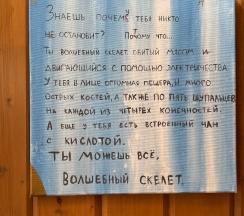 Знаешь почему тебя никто
не остановит? Потому что...
Ты волшебный скелет обитый мясом и
двигающийся с помощью электричества.
У тебя в лице огромная пещера, и много
острых костей, а также по пять щупальцев
на каждой из четырех конечностей.
А еще у тебя есть встроенный чан
с кислотой.
Ты можешь всё,
волшебный скелет.